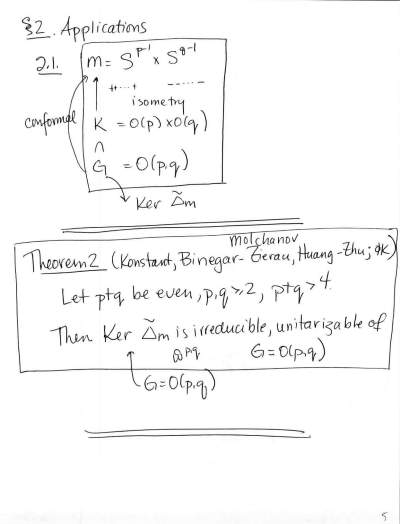 §2. Applications
2.1. m = S^{p-1} × S^{q-1}
++···+ -------
isometry
conformal
K = O(p) × O(q)
∩
G = O(p,q)
Ker Δ̃m
molchanov
Theorem 2 (Konstant, Binegar-Zierau, Huang-Zhu; ØK)
Let p+q be even, p,q ≥ 2, p+q > 4.
Then Ker Δ̃m is irreducible, unitarizable of
ϖ^{p,q} G = O(p,q)
G = O(p,q)
5